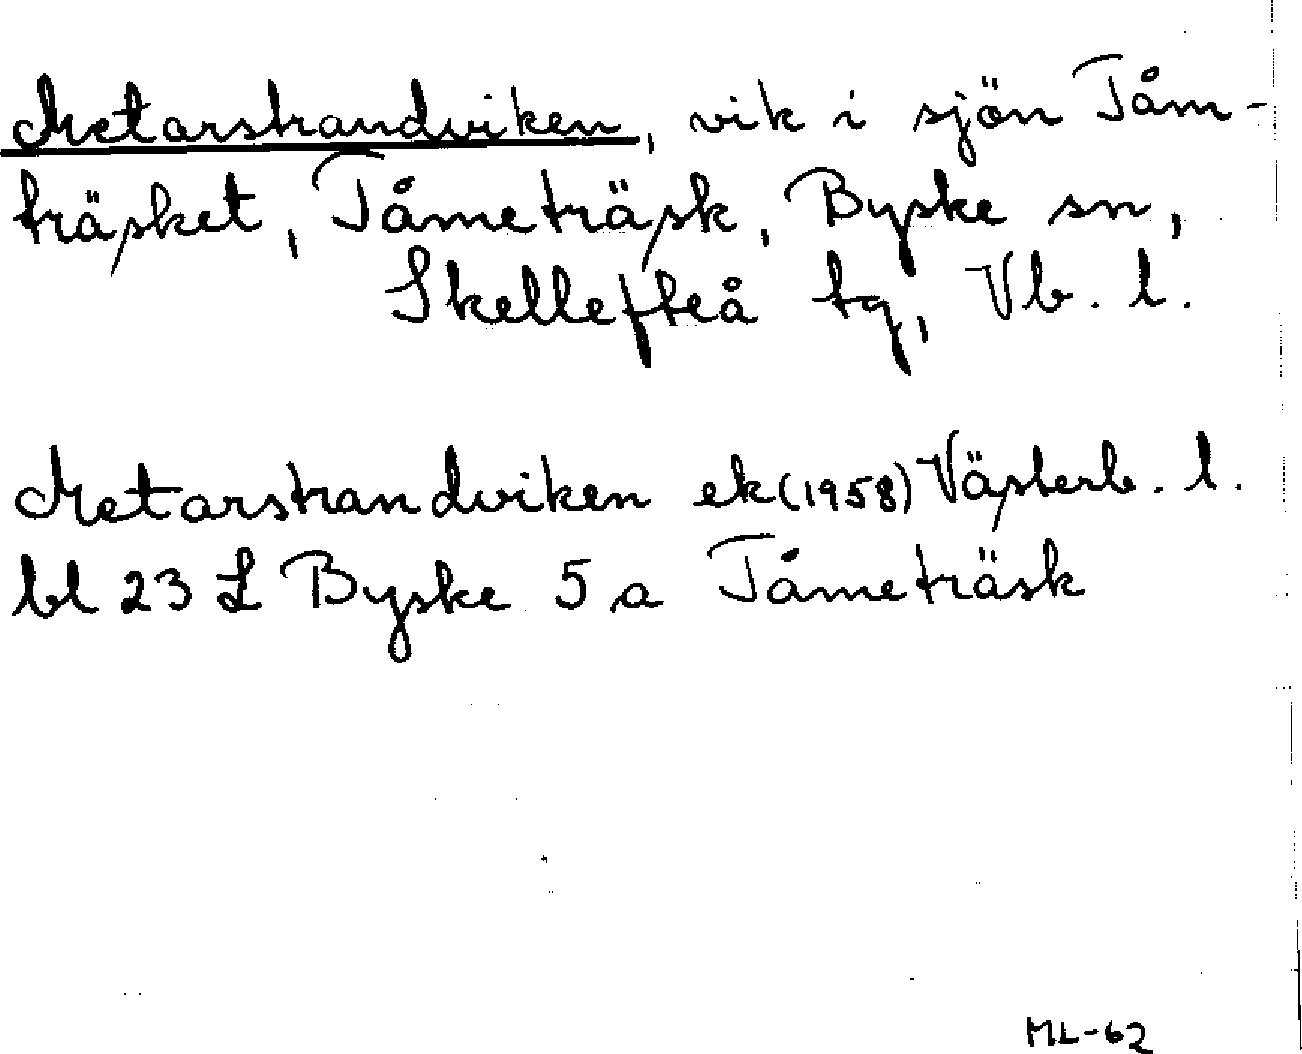 Metarstrandviken, vik i sjön Tåm-
träsket, Tåmeträsk, Byske sn,
Skellefteå tg, Vb. l.
Metarstrandviken ek (1958) Västerb. l.
bl 23 L Byske 5 a Tåmeträsk
ML-62